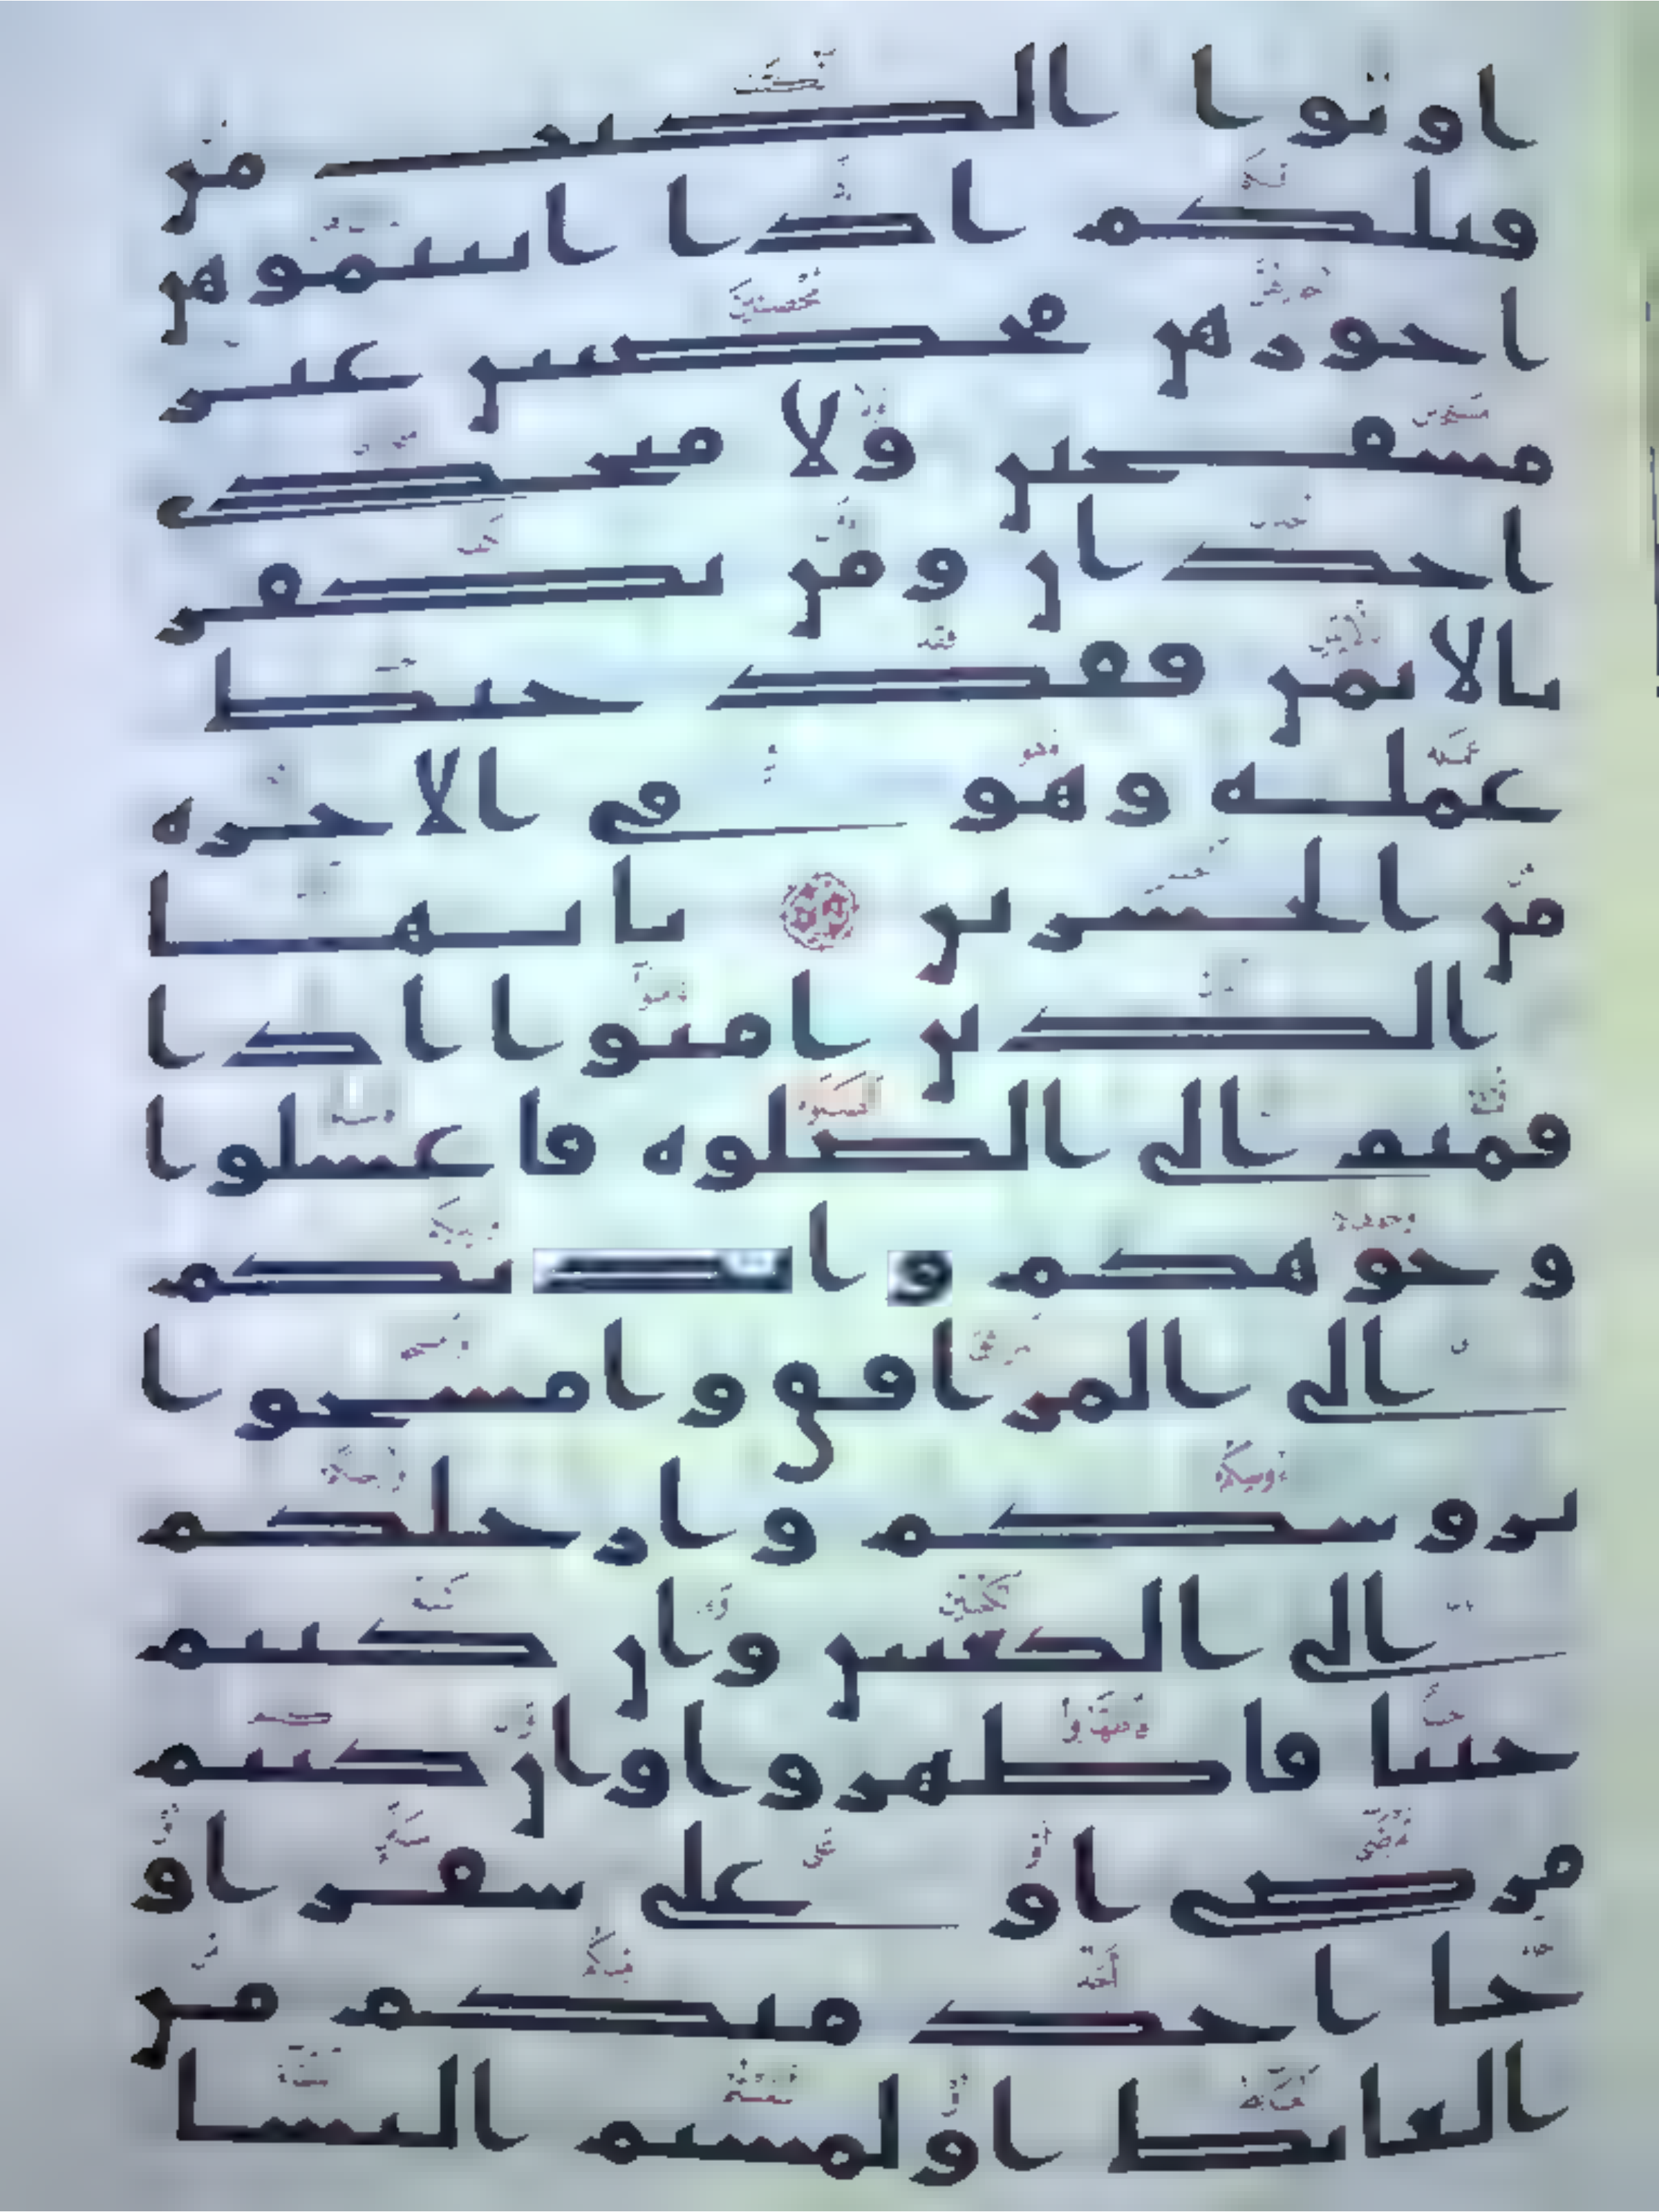 اوتوا الكتب من
قبلكم اذا اتيتموهن
اجورهن محصنين غير
مسفحين ولا متخذى
اخدان ومن يكفر
بالايمن فقد حبط
عمله وهو فى الاخره
من الخسرين يايها
الذين امنوا اذا
قمتم الى الصلوه فاغسلوا
وجوهكم وايديكم
الى المرافق وامسحوا
بروسكم وارجلكم
الى الكعبين وان كنتم
جنبا فاطهروا وان كنتم
مرضى او على سفر او
جا احد منكم من
الغايط او لمستم النسا